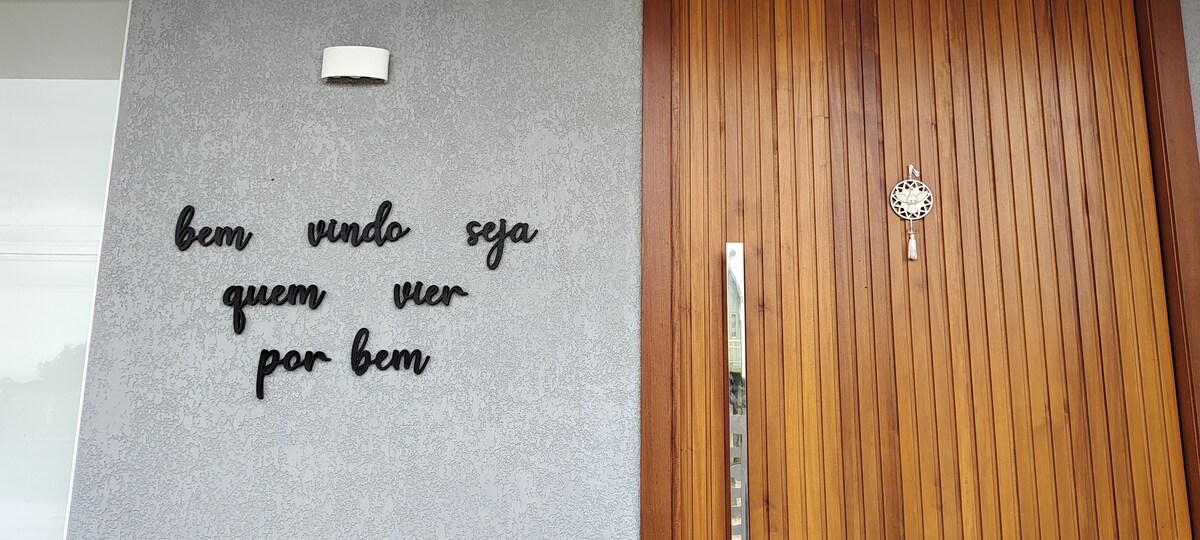 bem vindo seja
quem vier
por bem